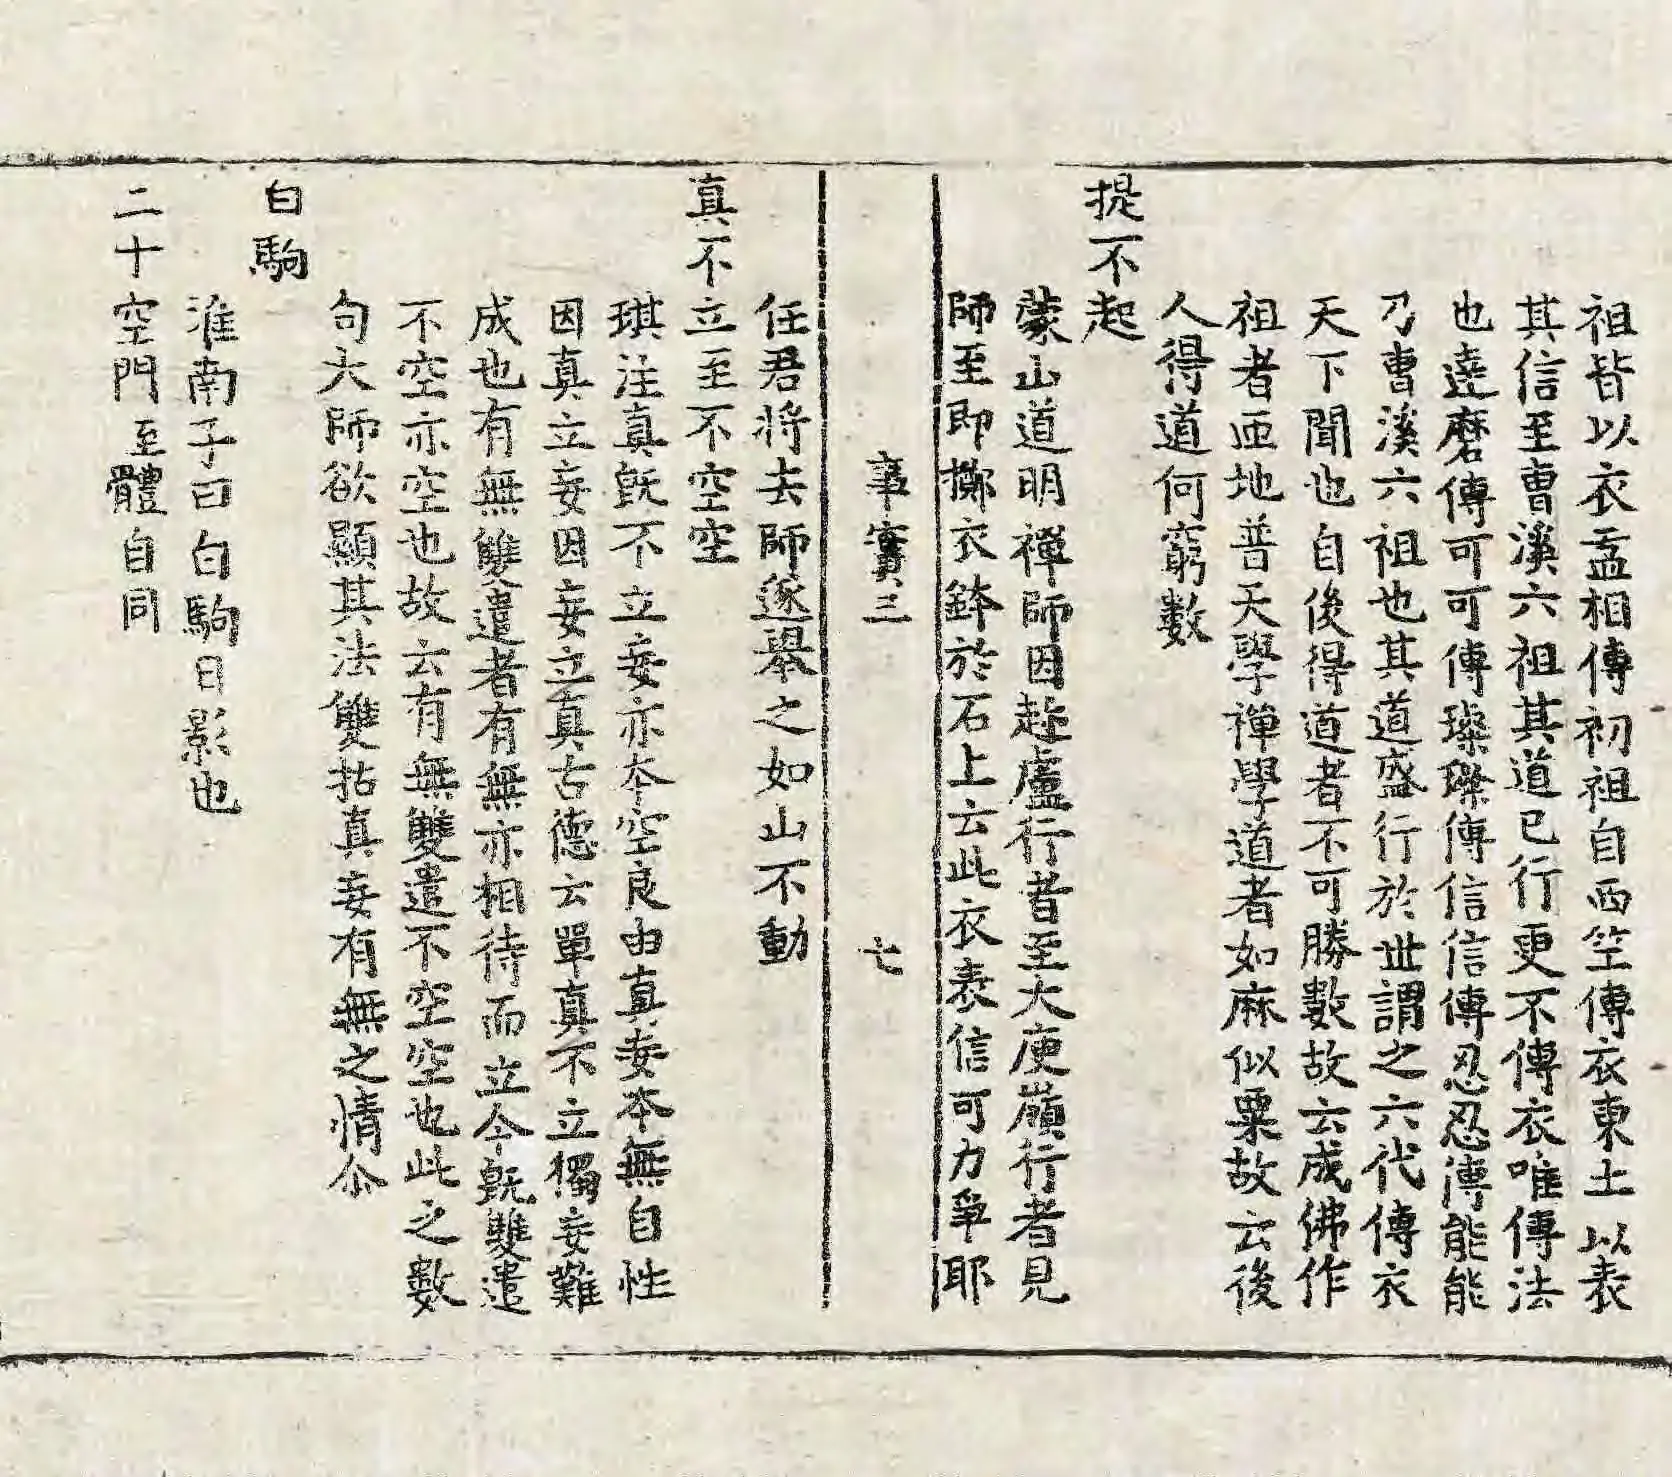 祖皆以衣盂相傳初祖自西竺傳衣東土以表
其信至曹溪六祖其道已行更不傳衣唯傳法
也達磨傳可可傳璨璨傳信信傳忍忍傳能能
乃曹溪六祖也其道盛行於世謂之六代傳衣
天下聞也自後得道者不可勝數故云成佛作
祖者匝地普天學禪學道者如麻似粟故云後
人得道何窮數
提不起
蒙山道明禪師因趂盧行者至大庾嶺行者見
師至即擲衣鉢於石上云此衣表信可力爭耶
事實三 七
任君將去師遂舉之如山不動
真不立至不空空
琪注真旣不立妄亦本空良由真妄本無自性
因真立妄因妄立真古德云單真不立獨妄難
成也有無雙遣者有無亦相待而立今旣雙遣
不空亦空也故云有無雙遣不空空也此之數
句大師欲顯其法雙拈真妄有無之情尒
白駒
淮南子曰白駒日影也
二十空門至體自同